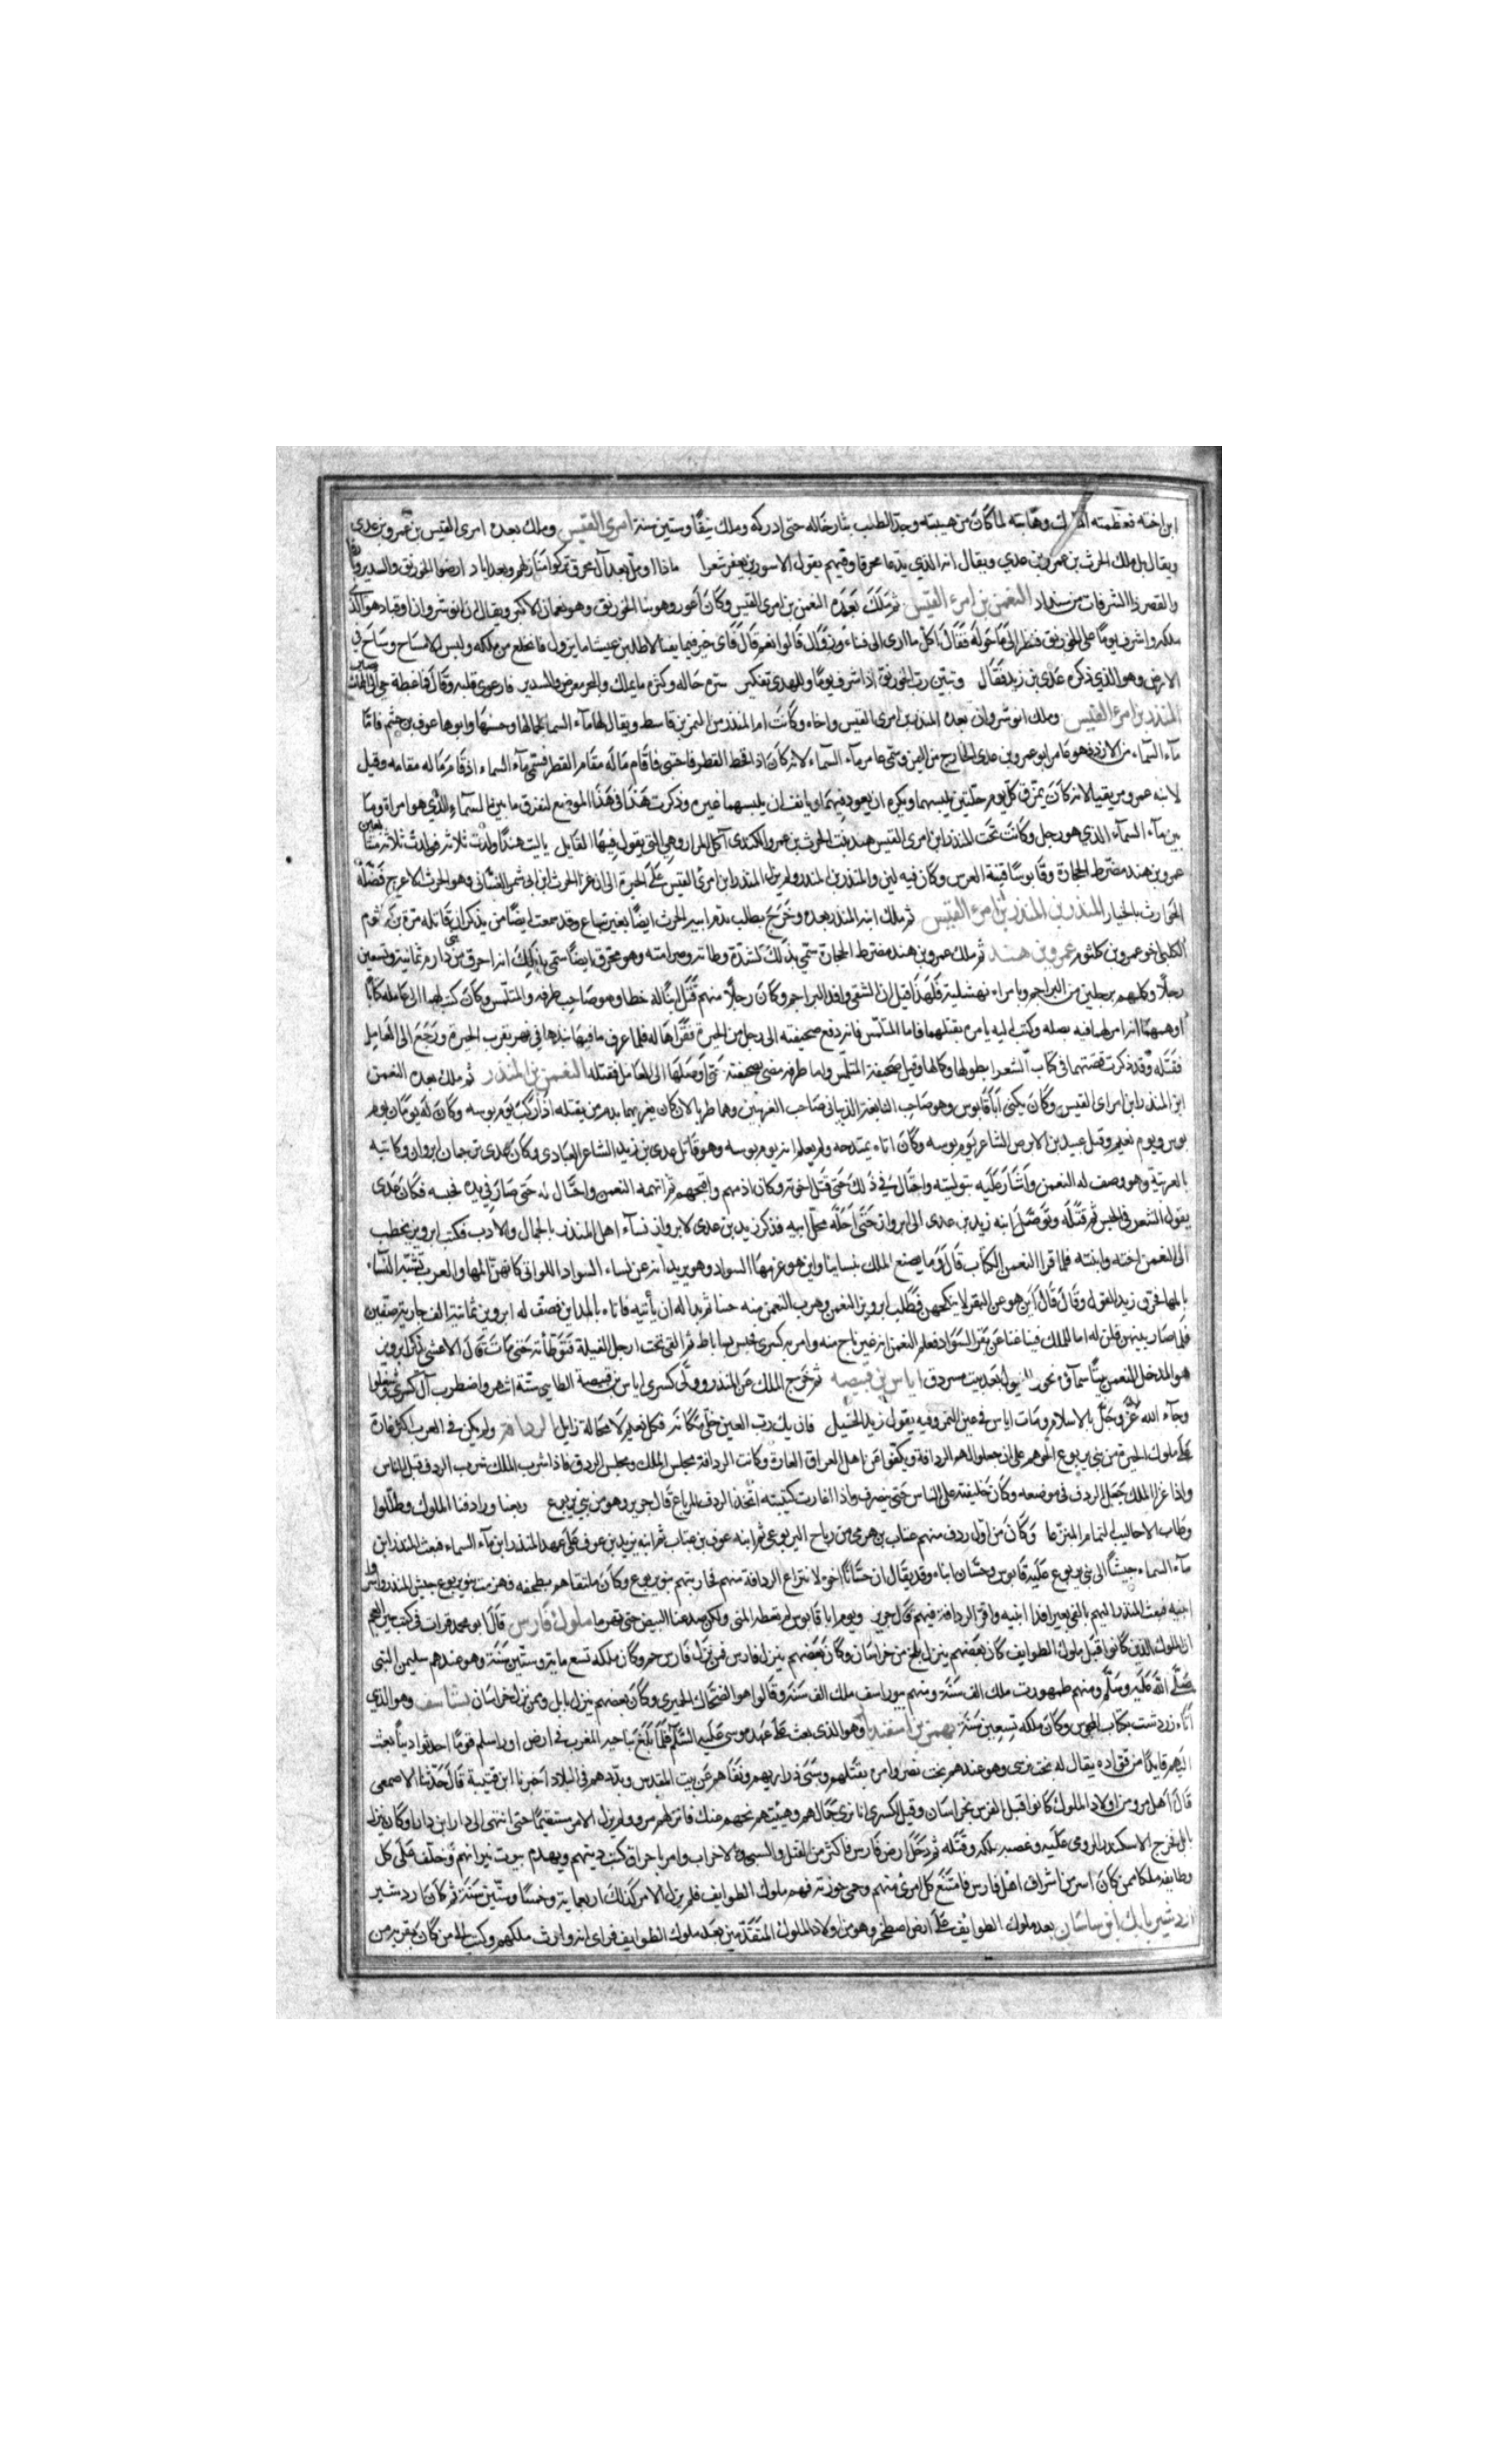 ابن اخته فعظمته الملوك وهابته لما كان من هيبته وجدّ الطلب بثار خاله حتى ادركه وملك نيفا وستين سنة امرئ القيس وملك بعده امرئ القيس بن عمرو بن عدى
ويقال بل ملك الحرث بن عمرو بن عدي ويقال انه الذي يدعا محرقا وفيهم يقول الاسود بن يعفر شعرا ماذا اومل بعد آل محرق تركوا منازلهم وبعد اياد ارض الخورنق والسدير وبارق
والقصر ذا الشرفات من سنداد النعمن بن امرء القيس ثم ملك بعده النعمن بن امرئ القيس وكان أعور وهو بنا الخورنق وهو نعمان الاكبر ويقال ان انوشروان ابن قباد هو الذى
ملكه واشرف يوما على الخورنق فنظر الى ما حوله فقال اكل ما ارى الى فناء وزوال قالوا نعم قال فاى خير فيما يفنا لاطلبن عيشا ما يزول فانخلع من ملكه ولبس الامساح وساح في
الارض وهو الذي ذكره عدى بن زيد فقال وتبين رب الخورنق اذ اشرف يوما وللهدى تفكير سره حاله وكثره ما يملك والبحر معرض والسدير فارعوى قلبه وقال فما غبطة حي الى الممات يصير
المنذر بن امرء القيس وملك انوشروان بعده المنذر بن امرى القيس واخاه وكانت ام المنذر من النمر بن قاسط ويقال لها مآء السما لجمالها وحسنها وابوها عوف بن جشم فامّا
مآء السمآء من الازد فهو عامر ابو عمرو بن عدى الخارج من اليمن وسمى عامر مآء السمآء لانه كان اذا قحط القطر احتبى فاقام ماله مقام القطر فسمى مآء السماء اذ قام ماله مقامه وقيل
لابنه عمرو مزيقيا لانه كان يمزق كل يوم حلتين يلبسهما ويكره ان يعود فيهما ويانف ان يلبسهما غيره وذكرت هذا في هذا الموضع لنفرق ما بين مآء السمآء الذي هو امراة وما
بين مآء السمآء الذي هو رجل وكانت تحت المنذر ابن امرى القيس هند بنت الحرث بن عمرو الكندى آكل المرار وهي التي يقول فيها القايل ياليت هندا ولدت ثلاثه فولدت ثلاثه
عمرو بن هند مضرط الحجارة وقابوسا قينة العرس وكان فيه لين والمنذر بن المنذر ولم يزل المنذر ابن امرئ القيس على الحيرة الى ان غزا الحرث ابن ابى شمر الغسّانى وهو الحرث الاعرج فقتله
الحارث بالخيار المنذر بن المنذر بن امرء القيس ثم ملك ابنه المنذر بعده وخرج يطلب بدم ابيه الحرث ايضا وقد سمعت ايضا من يذكر ان قاتله مرة بن كلثوم
الكلبى اخو عمرو بن كلثوم عمرو بن هند ثم ملك عمرو بن هند مضرط الحجارة سمي بذلك لشدة وطاته وصرامته وهو محرق ايضا سمى بذلك انه احرق من بنى دارم ثمانية وتسعين
رجلا وكملهم برجلين من البراجم وبامراه نهشلية فلهذا قيل ان الشقي وافد البراجم وكان رجلا منهم قتل ابنا له خطا وهو صاحب طرفه والمتلمس وكان كتب لهما الى عامله كتابا
اوهمهما انه امر لهما فيه بصله وكتب اليه يامره بقتلهما فاما المتلمس فانه دفع صحيفته الى رجل من الحيرة فقراها له فلما عرف ما فيها نبذها في نهر بقرب الحيرة ورجع الى العامل
فقتله وقد ذكرت قصتهما في كتاب الشعرا بطولها وكمالها وقيل صحيفة المتلمس واما طرفه فمضى بصحيفته حتى اوصلها الى العامل فقتله النعمن بن المنذر ثم ملك بعده النعمن
ابن المنذر ابن امراى القيس وكان يكنى ابا قابوس وهو صاحب النابغة الذبيانى صاحب الغريين وهما طربالان كان يغريهما بدم من يقتله اذا ركب يوم بوسه وكان له يومان يوم
بوس ويوم نعيم وقتل عبيد بن الابرص الشاعر يوم بوسه وكان اتاه يمتدحه ولم يعلم انه يوم بوسه وهو قاتل عدى بن زيد الشاعر العبادى وكان عدى ترجمان ابرواز وكاتبه
بالعربية وهو وصف له النعمن واشار عليه بتوليته واحتال في ذلك حتى قتل اخوته وكان اذمهم واقبحهم ثم اتهمه النعمن واحتال له حتى صار في يده فحبسه فكان عدى
يقول الشعر في الحبس ثم قتله وتوصل ابنه زيد بن عدى الى ابرواز حتى احله محل ابيه فذكر زيد بن عدى لابرواز نسآء اهل المنذر بالجمال والادب فكتب ابرويز يخطب
الى النعمن اخته وابنته فلما قرا النعمن الكتاب قال وما يصنع الملك بنساينا واين هو عن مها السواد وهو يريد انه عن نساء السواد اللواتى كانهن المها والعرب تشبه النسآء
بالمها فحرف زيد القول وقال قال اين هو عن البقر لا ينكحهن فطلب ابرويز النعمن وهرب النعمن منه حينا ثم بدا له ان ياتيه فاتاه بالمداين فصف له ابرويز ثمانية الف جارية صفين
فلما صار بينهن قلن له اما للملك فينا غنا عن بقر السواد فعلم النعمن انه غير ناج منه وامر به كسرى فحبس بساباط ثم القي تحت ارجل الفيلة فتوطأته حتى مات قال الاعشى يذكر ابرويز
هو المدخل النعمن بيتا سمآؤه نحور الفيول بعد بيت مسردق اياس بن قبيصه ثم خرج الملك عن المنذر وولّى كسرى اياس بن قبيصة الطايى ستّة اشهر واضطرب آل كسرى وشغلوا
وجآء الله عزّ وجلّ بالاسلام ومات اياس في عين التمر وفيه يقول زيد الخيل فان يك رب العين خلّى مكانه فكل نعيم لا محالة زايل الردافه ولم يكن في العرب اكثر غارة
على ملوك الحيرة من بني يربوع على ان جعلوا لهم الردافة ويكفوا عن اهل العراق الغارة وكانت الردافة مجلس الملك ومجلس الردف فاذا شرب الملك شرب الردف قبل الناس
واذا غزا الملك جعل الردف في موضعه وكان خليفته على الناس حتى ينصرف واذا اغارت كتيبته اخذ الردف المرباع قال جرير وهو من بني يربوع ربعنا ورادفنا الملوك وظللوا
وطاب الاحاليب الثمام المنزعا وكان من اول ردف منهم عتاب بن هرمى من رياح اليربوعى ثم ابنه عوف بن عتاب ثم ابنه يزيد بن عوف على عهد المنذر ابن مآء السماء فبعث المنذر ابن
مآء السماء جيشا الى بني يربوع عليه قابوس وحسّان ابناه وقد يقال ان حسّانا اخوه لانتزاع الردافة منهم فحاربتهم بنو يربوع وكان ملتقاهم بطخفه فهزمت بنو يربوع جيش المنذر واسروا
ابنيه فبعث المنذر اليهم بالفى بعير فدا ابنيه واقر الردافة فيهم قال جرير ويوم ابا قابوس لم نعطه المنى ولكن صدعنا البيض حتى تهزما ملوك فارس قال ابو محمد قرات في كتب سير العجم
ان الملوك الذين كانوا قبل ملوك الطوايف كان بعضهم ينزل بلخ من خراسان وكان بعضهم ينزل فارس فمن نزل فارس جم وكان ملكه تسع مايه وستين سنة وهو عندهم سليمن النبى
صلّى الله عليه وسلّم ومنهم طهمورت ملك الف سنة ومنهم بيوراسف ملك الف سنة وقالوا هو الضحّاك الحميرى وكان بعضهم ينزل بابل وممن نزل خراسان بشتاسف وهو الذي
اتاه زردشت بكتاب المجوس وكان ملكه تسعين سنة بهمن بن اسفنديا وهو الذى بعث على عهد موسى عليه السّلام فلما بلغ ناحية المغرب في ارض اوراسلم قوما احدثوا دينا بعث
اليهم قايدا من قوّاده يقال له بخت نرسى وهو عندهم بخت نصر وامره بقتلهم وسبى ذراريهم ونفاهم عن بيت المقدس وبددهم في البلاد اخبرنا ابن قتيبة قال حدّثنا الاصمعى
قال اهل مرو من اولاد الملوك كانوا قبل الفرس بخراسان وقيل لكسرى انا نرى جمالهم وهيئتهم نحهم عنك فانزلهم مرو ولم يزل الامر مستقيما حتى انتهى الى دارا ابن دارا وكان ينزل
بابل فخرج الاسكندر الرومى عليه وغصبه ملكه وقتله ثم دخل ارض فارس فاكثر من القتل والسبى والاخراب وامر باحراق كتب دينهم وبهدم بيوت نيرانهم وخلف على كل
وطايفه ملكا ممن كان اسر من اشراف اهل فارس فامتنع كل امرئ منهم وحمى حوزته فهم ملوك الطوايف فلم يزل الامر كذلك اربعماية وخمسا وستين سنة ثم كان اردشير
ازدشير بابك ابن ساسان بعد ملوك الطوايف على ارض اصطخر وهو من اولاد الملوك المتقدّمين بعد ملوك الطوايف فراى انه وارث ملكهم وكتب الى من كان بقربه من